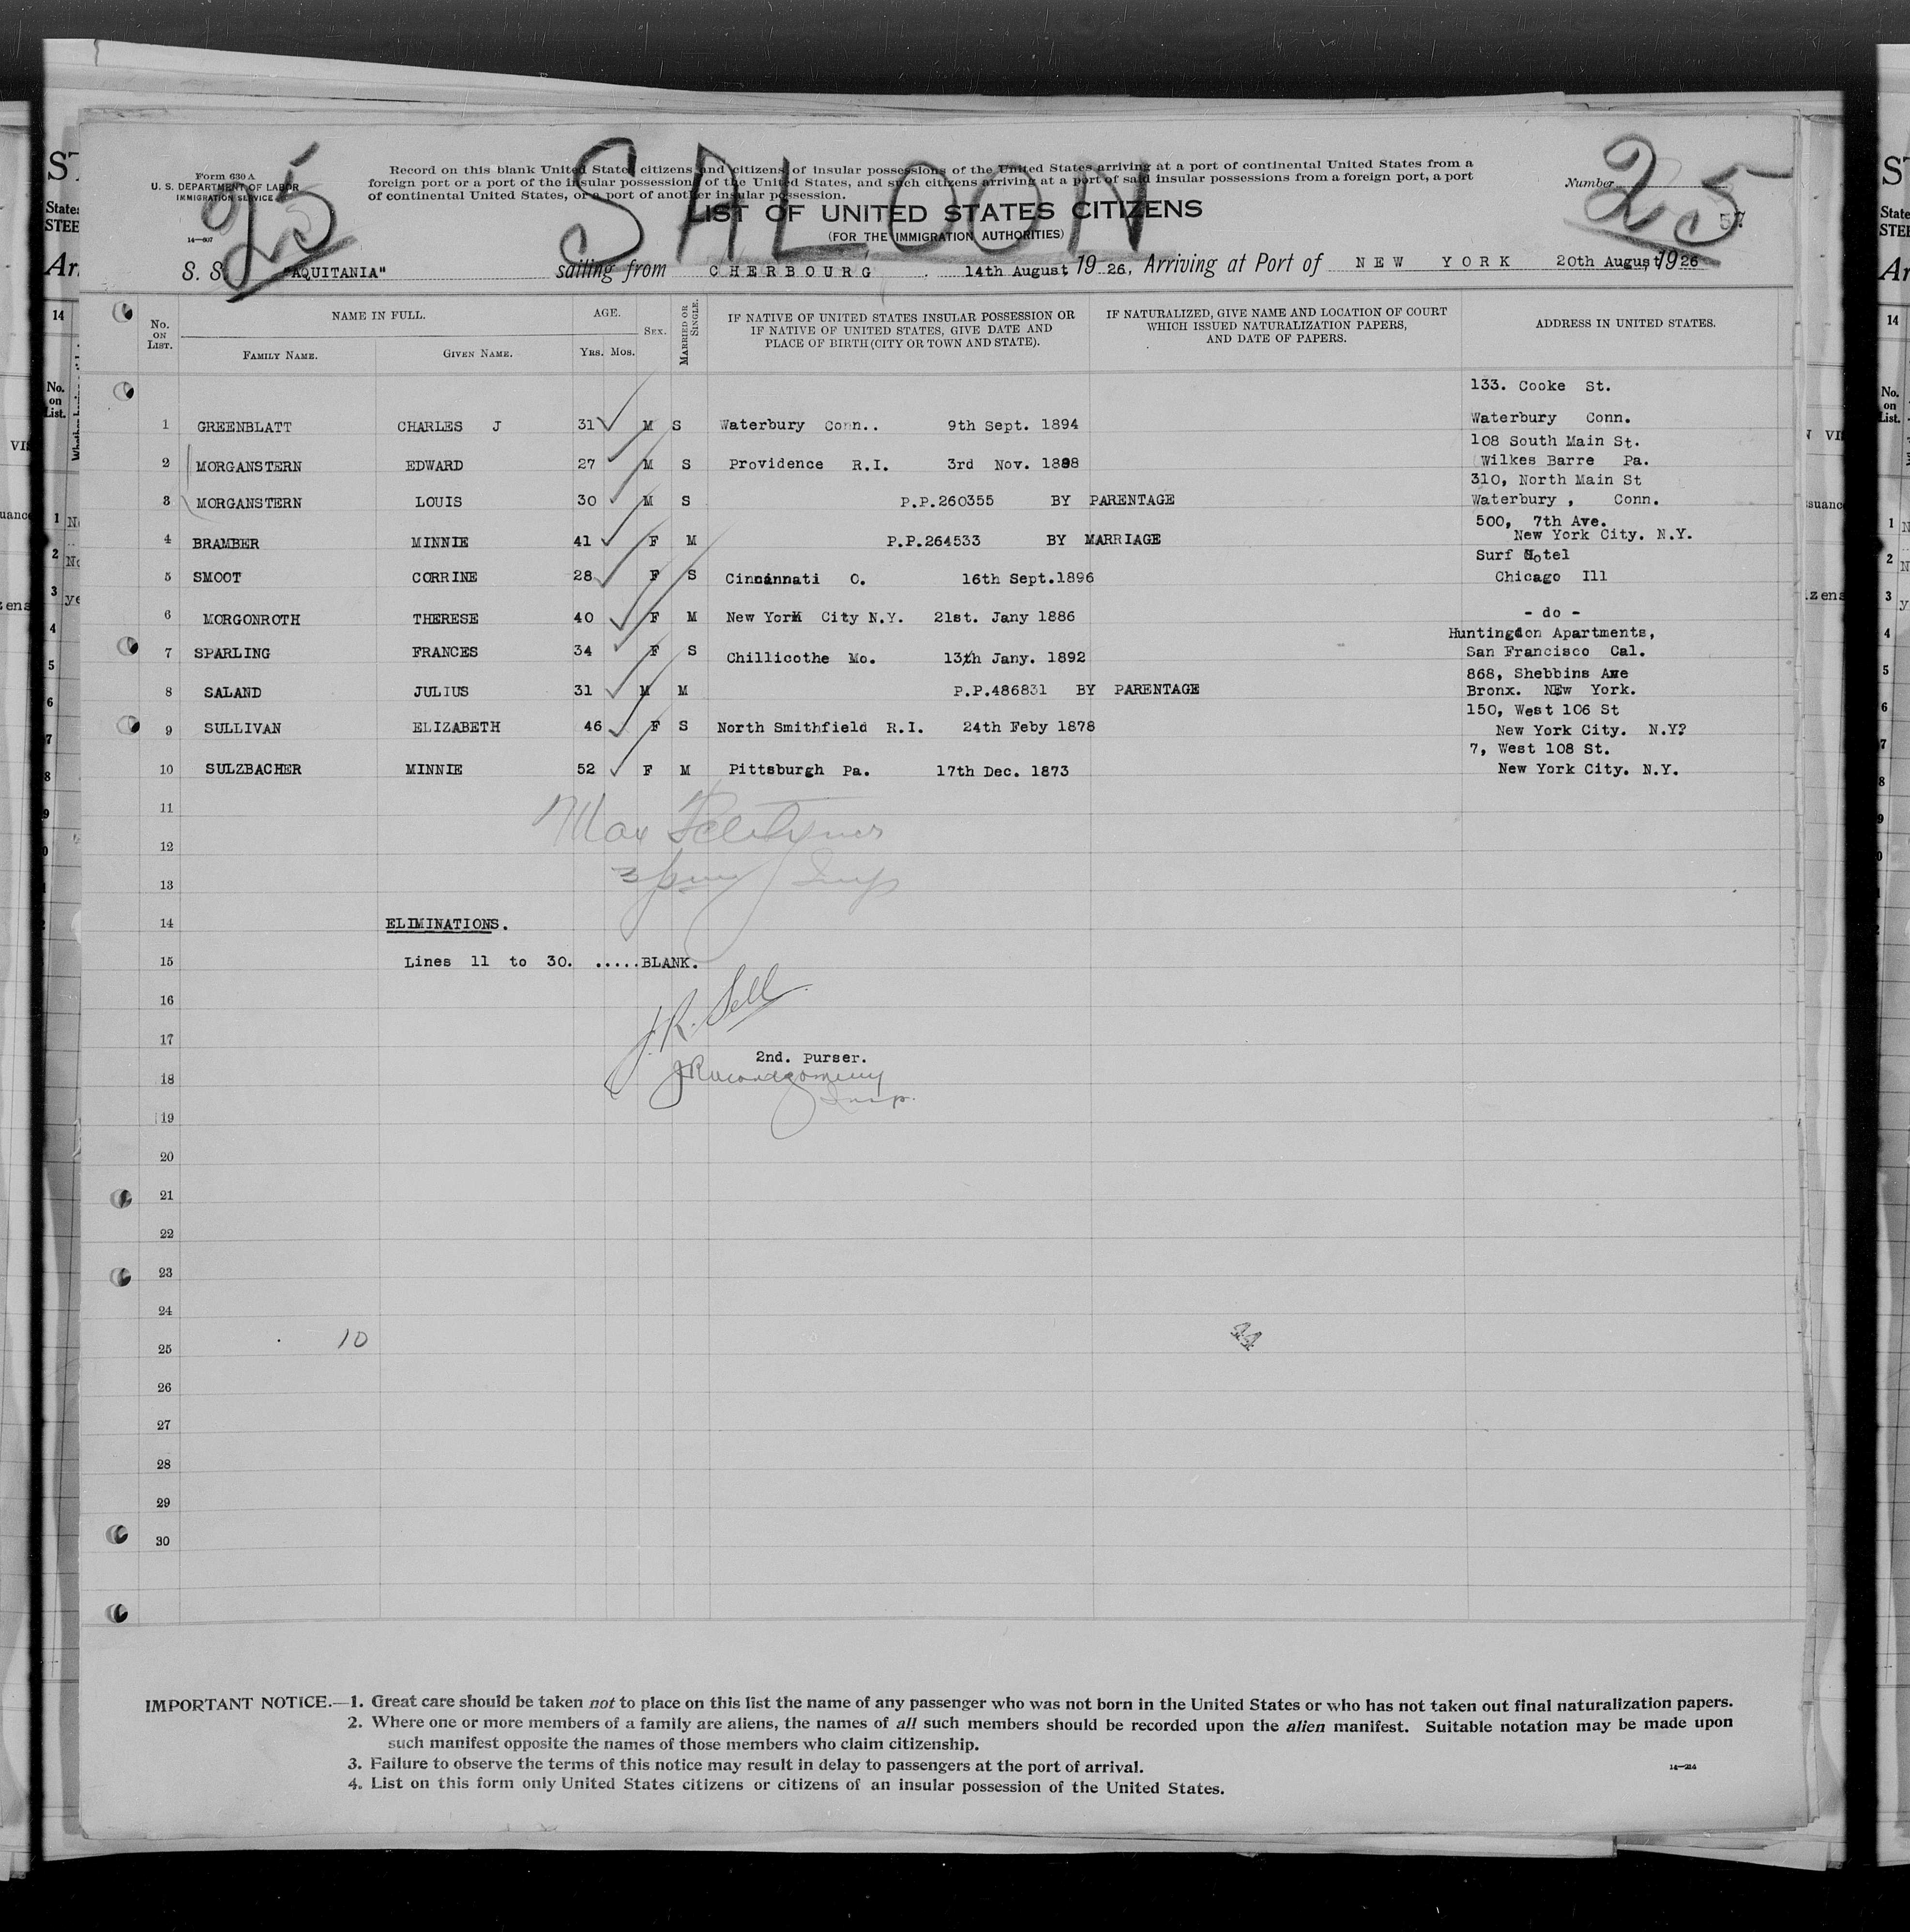 Form 630 A
U. S. DEPARTMENT OF LABOR
IMMIGRATION SERVICE
14—607
25
SALOON
Record on this blank United States citizens and citizens of insular possessions of the United States arriving at a port of continental United States from a
foreign port or a port of the insular possessions of the United States, and such citizens arriving at a port of said insular possessions from a foreign port, a port
of continental United States, or a port of another insular possession.
Number
25
57
LIST OF UNITED STATES CITIZENS
(FOR THE IMMIGRATION AUTHORITIES)
S. S. "AQUITANIA" sailing from CHERBOURG. 14th August 19 26, Arriving at Port of NEW YORK 20th August, 19 26
No. ON LIST. NAME IN FULL. FAMILY NAME. GIVEN NAME. AGE. YRS. MOS. SEX. MARRIED OR SINGLE. IF NATIVE OF UNITED STATES INSULAR POSSESSION OR IF NATIVE OF UNITED STATES, GIVE DATE AND PLACE OF BIRTH (CITY OR TOWN AND STATE). IF NATURALIZED, GIVE NAME AND LOCATION OF COURT WHICH ISSUED NATURALIZATION PAPERS, AND DATE OF PAPERS. ADDRESS IN UNITED STATES.
133. Cooke St.
1 GREENBLATT CHARLES J 31 M S Waterbury Conn.. 9th Sept. 1894 Waterbury Conn.
108 South Main St.
2 MORGANSTERN EDWARD 27 M S Providence R.I. 3rd Nov. 1898 Wilkes Barre Pa.
310, North Main St
3 MORGANSTERN LOUIS 30 M S P.P.260355 BY PARENTAGE Waterbury , Conn.
500, 7th Ave.
4 BRAMBER MINNIE 41 F M P.P.264533 BY MARRIAGE New York City. N.Y.
Surf Hotel
5 SMOOT CORRINE 28 F S Cincinnati O. 16th Sept.1896 Chicago Ill
6 MORGONROTH THERESE 40 F M New York City N.Y. 21st. Jany 1886 - do -
Huntingdon Apartments,
7 SPARLING FRANCES 34 F S Chillicothe Mo. 13th Jany. 1892 San Francisco Cal.
868, Shebbins Ave
8 SALAND JULIUS 31 M M P.P.486831 BY PARENTAGE Bronx. NEw York.
150, West 106 St
9 SULLIVAN ELIZABETH 46 F S North Smithfield R.I. 24th Feby 1878 New York City. N.Y?
7, West 108 St.
10 SULZBACHER MINNIE 52 F M Pittsburgh Pa. 17th Dec. 1873 New York City. N.Y.
11
Max
12
13 Insp
14 ELIMINATIONS.
15 Lines 11 to 30. .....BLANK.
16
J. R. Sell
17
2nd. Purser.
18 JR Montgomery
Insp.
19
20
21
22
23
24
10
25
26
27
28
29
30
IMPORTANT NOTICE.—1. Great care should be taken not to place on this list the name of any passenger who was not born in the United States or who has not taken out final naturalization papers.
2. Where one or more members of a family are aliens, the names of all such members should be recorded upon the alien manifest. Suitable notation may be made upon
such manifest opposite the names of those members who claim citizenship.
3. Failure to observe the terms of this notice may result in delay to passengers at the port of arrival.
4. List on this form only United States citizens or citizens of an insular possession of the United States.
14—214